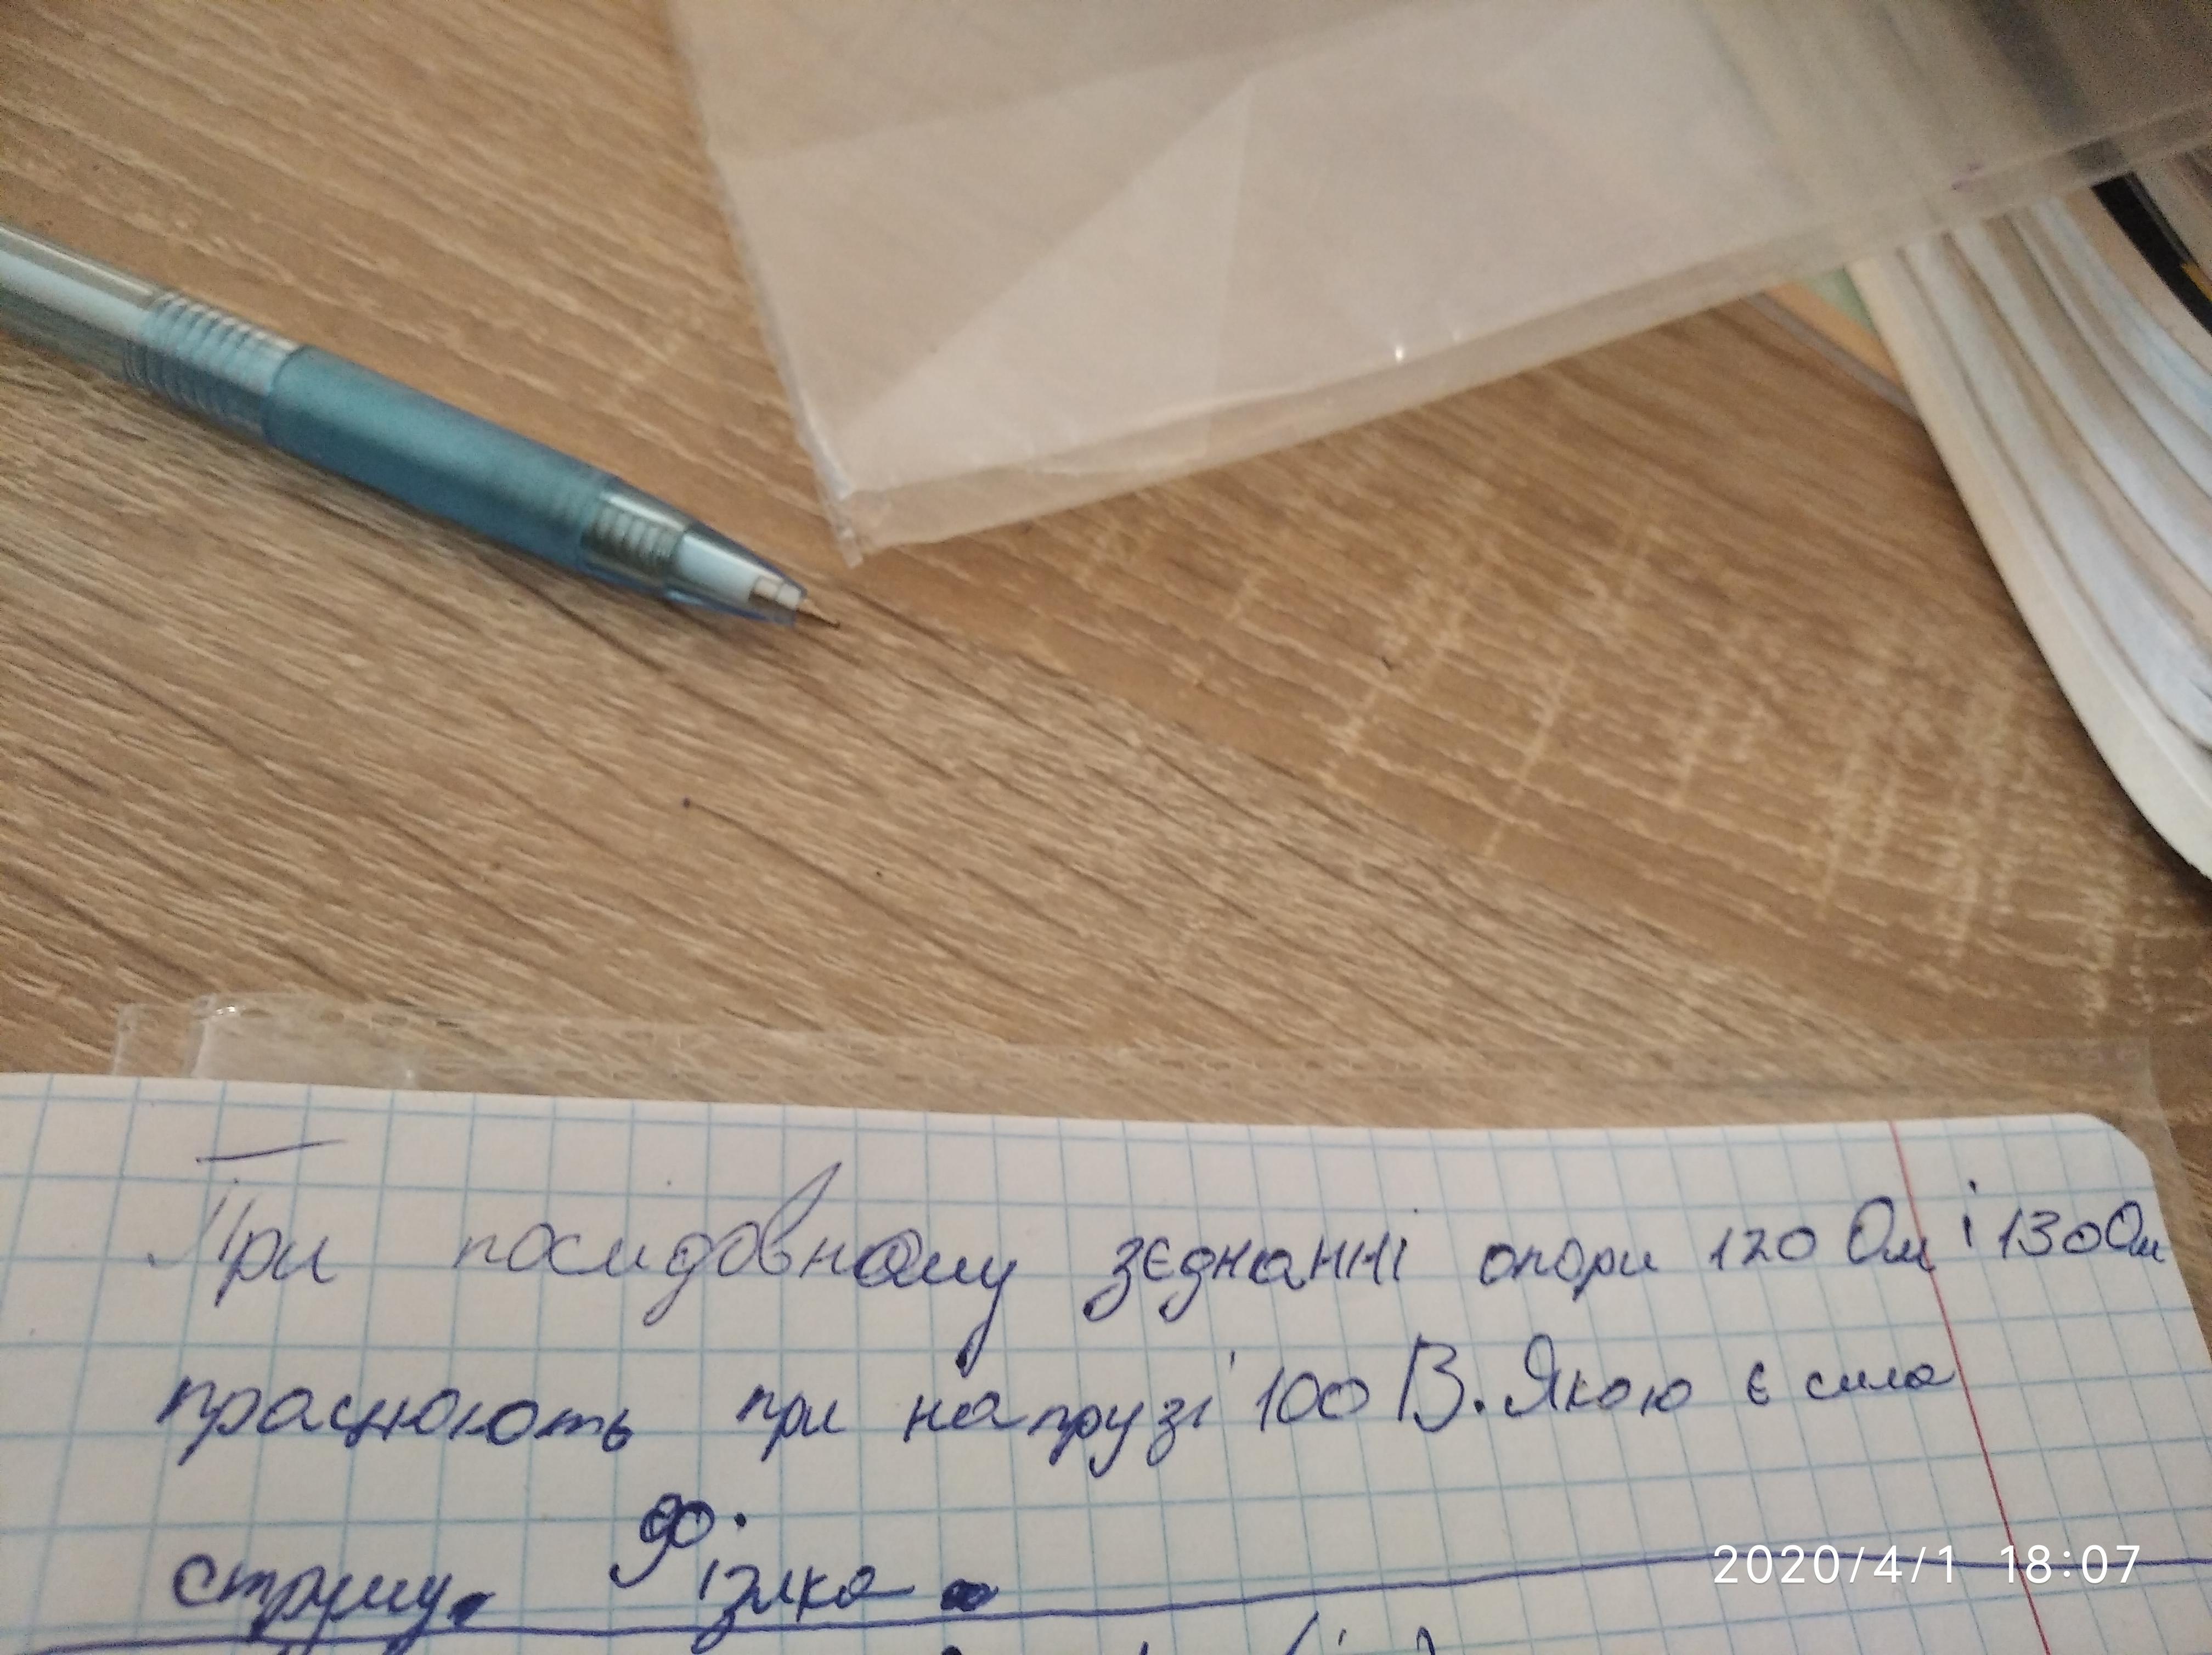 При послідовному зєднанні опори 120 Ом і 130 Ом
працюють при напрузі 100 В. Якою є сила
струму. Фізика
2020/4/1 18:07